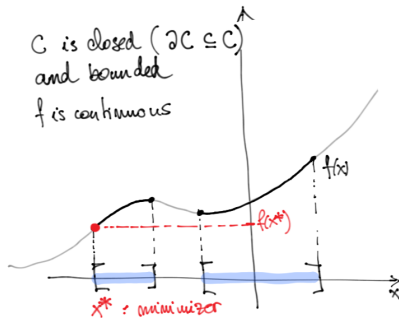 C is closed (∂C ⊆ C)
and bounded
f is continuous
f(x)
f(x*)
x
x* : minimizer